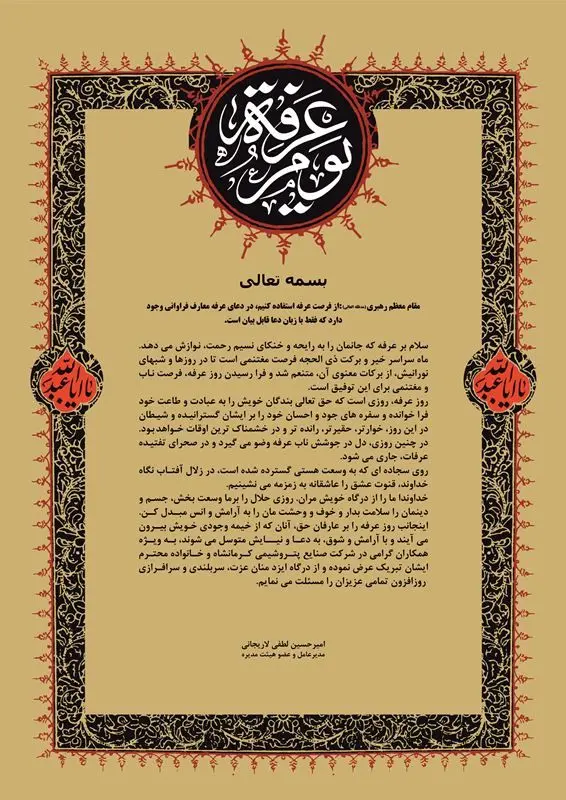 یوم عرفة
بسمه تعالی
مقام معظم رهبری(مدظله العالی):از فرصت عرفه استفاده کنیم، در دعای عرفه معارف فراوانی وجود
دارد که فقط با زبان دعا قابل بیان است.
سلام بر عرفه که جانمان را به رایحه و خنکای نسیم رحمت، نوازش می دهد.
ماه سراسر خیر و برکت ذی الحجه فرصت مغتنمی است تا در روزها و شبهای
نورانیش، از برکات معنوی آن، متنعم شد و فرا رسیدن روز عرفه، فرصت ناب
و مغتنمی برای این توفیق است.
روز عرفه، روزی است که حق تعالی بندگان خویش را به عبادت و طاعت خود
فرا خوانده و سفره های جود و احسان خود را بر ایشان گسترانیده و شیطان
در این روز، خوارتر، حقیرتر، رانده تر و در خشمناک ترین اوقات خواهدبود.
در چنین روزی، دل در جوشش ناب عرفه وضو می گیرد و در صحرای تفتیده
عرفات، جاری می شود.
روی سجاده ای که به وسعت هستی گسترده شده است، در زلال آفتاب نگاه
خداوند، قنوت عشق را عاشقانه به زمزمه می نشینیم.
خداوندا ما را از درگاه خویش مران. روزی حلال را برما وسعت بخش، جسم و
دینمان را سلامت بدار و خوف و وحشت مان را به آرامش و انس مبدل کن.
اینجانب روز عرفه را بر عارفان حق، آنان که از خیمه وجودی خویش بیرون
می آیند و با آرامش و شوق، به دعا و نیایش متوسل می شوند، به ویژه
همکاران گرامی در شرکت صنایع پتروشیمی کرمانشاه و خانواده محترم
ایشان تبریک عرض نموده و از درگاه ایزد منان عزت، سربلندی و سرافرازی
روزافزون تمامی عزیزان را مسئلت می نمایم.
امیرحسین لطفی لاریجانی
مدیرعامل و عضو هیئت مدیره
یا اباعبدالله
یا اباعبدالله